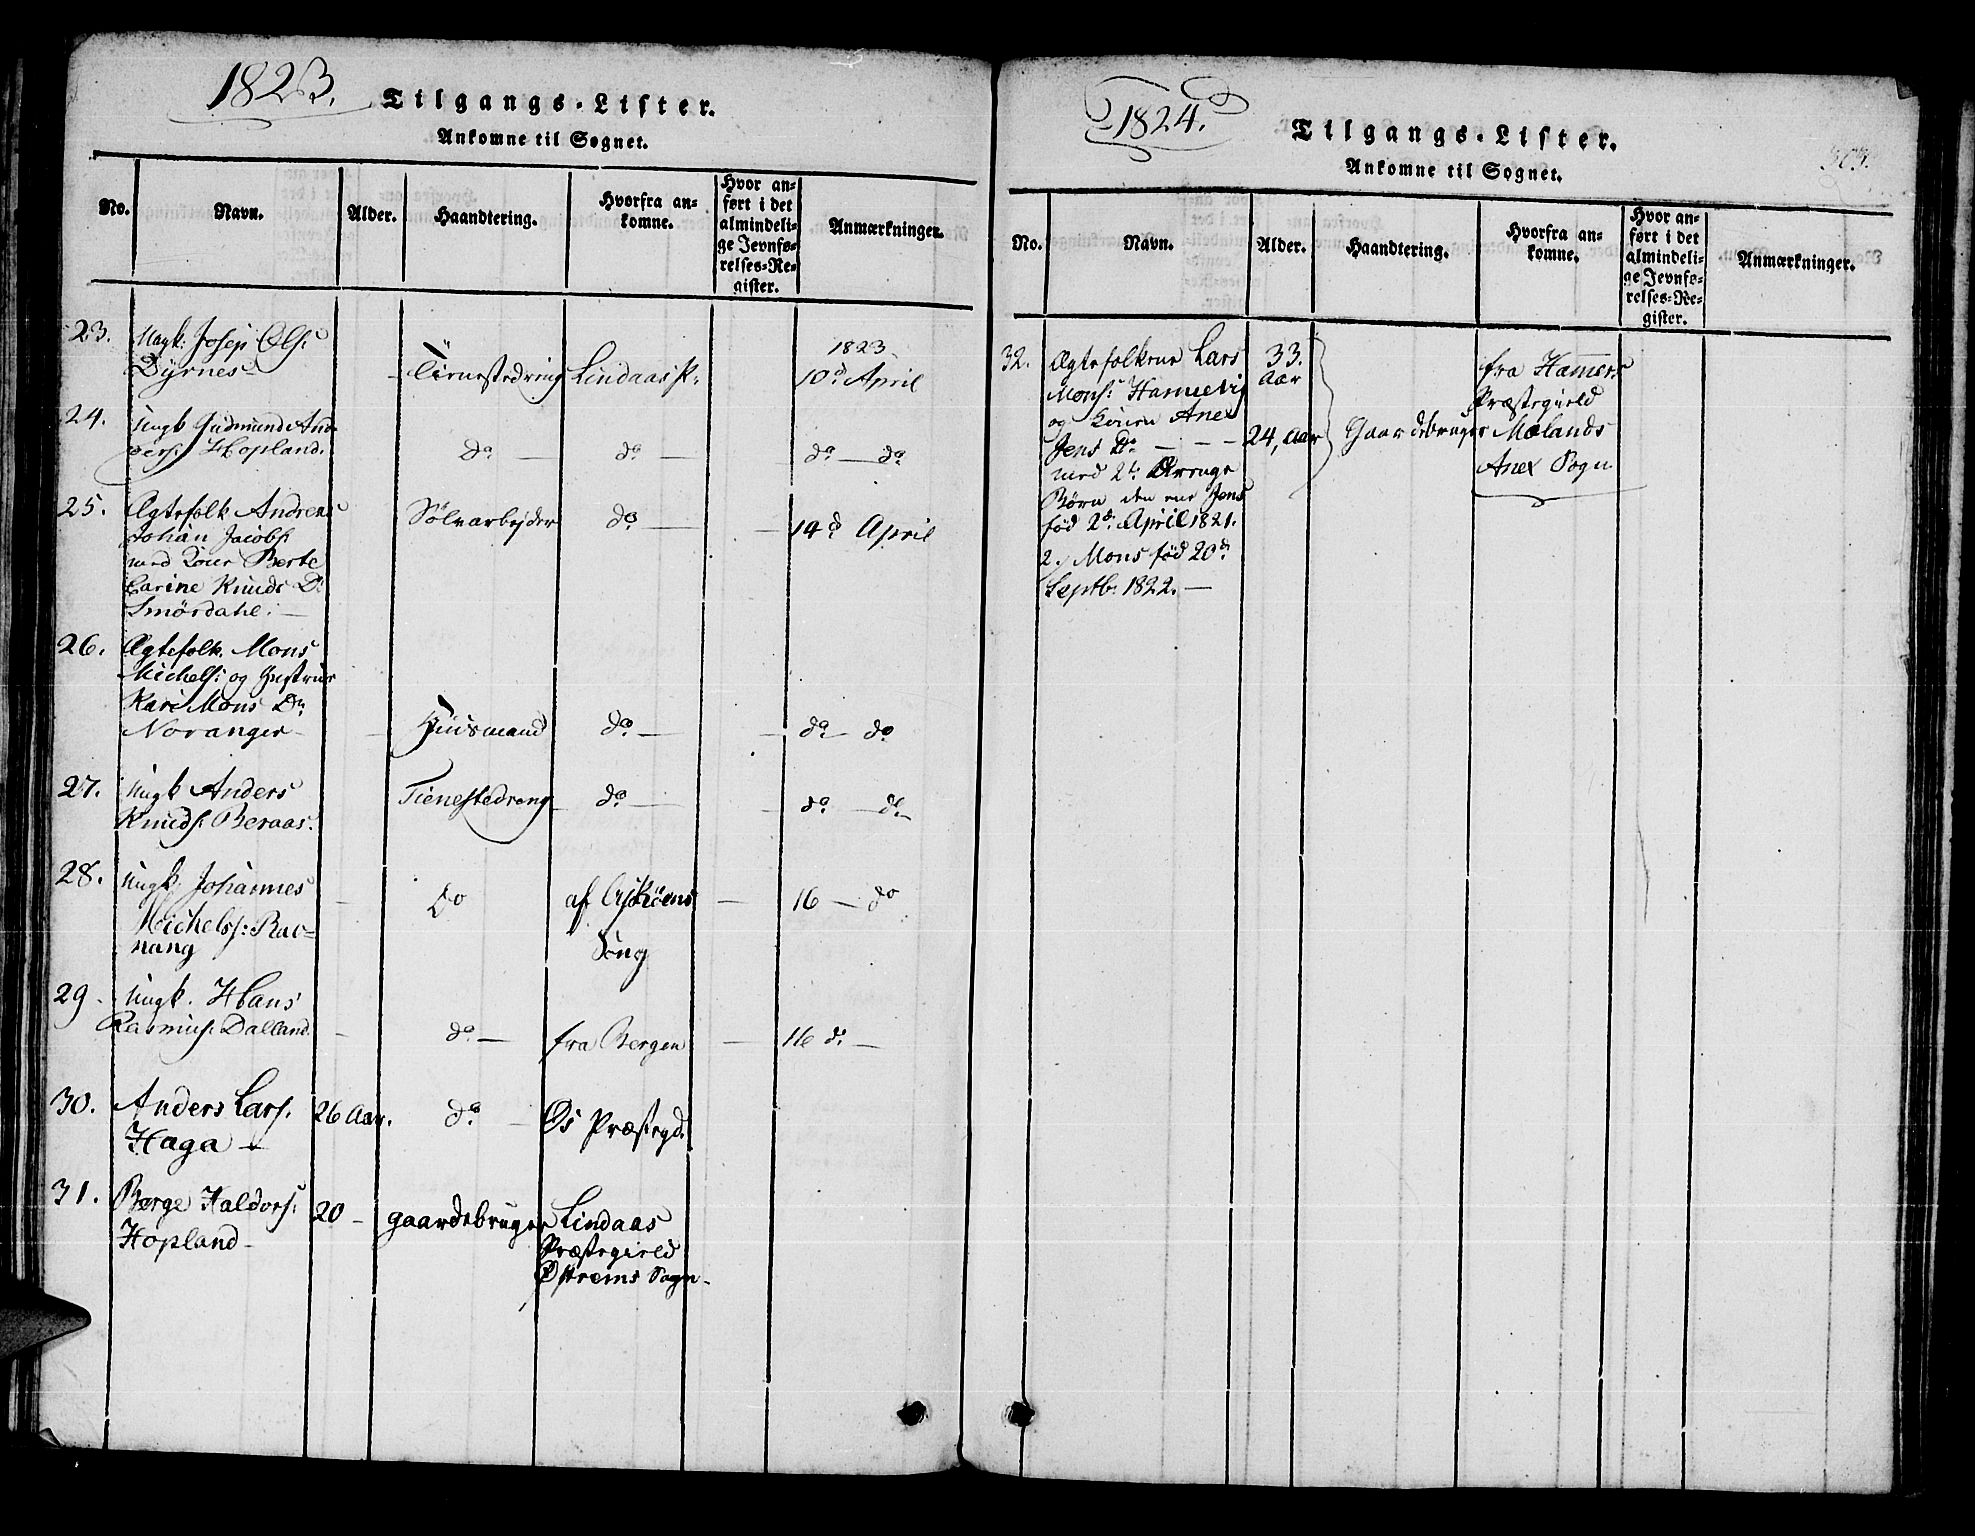 1823.
Tilgangs-Lister.
Ankomne til Sognet.
No.
Navn.
Alder.
Haandtering.
Hvorfra an-
komne.
Hvor an-
ført i det
almindeli-
ge Jevnfø-
relses-Re-
gister.
Anmærkninger.
23.
Ungk: Josep Ols:
Dyrnes
Tienestedreng
Lindaas P:
1823
10d April
24.
Ungk Gudmund And-
ders: Hopland.
do
do
do do
25.
Ægtefolk Andreas
Johan Jacobs:
med Kone Berte
Carine Knuds D:
Smördahl:
Sölvarbejder
do
14d April
26.
Ægtefolk. Mons
Michels: og Hustrue
Kari Mons Dr
Noranger
Huusmand
do
do do
27.
Ungk Anders
Knuds: Beraas.
Tienestedreng
do
do do
28.
Ungk. Johannes
Michelss: Rav=
nang
Do
af Askøens
Sogn
16 do
29.
Ungk. Hans
Rasmus: Dalland.
do
fra Bergen
16 d:
30.
Anders Lars.
Haga
26 Aar.
do
Øs Præstegd.
31.
Børge Haldors:
Hopland
20
gaardebruger
Lindaas
Præstegield
Østrems Sogn
1824.
Tilgangs-Lister.
Ankomne til Sognet.
303.
No.
Navn.
Alder.
Haandtering.
Hvorfra an-
komne.
Hvor an-
ført i det
almindeli-
ge Jevnfø-
relses-Re-
gister.
Anmærkninger.
32.
Ægtefolkene Lars
Mons: Hannevig
og Konen Ane
Jens Dr
med 2de Drenge
Børn den ene Jens
fød 2d: April 1821.
2. Mons fød 20d:
Septb: 1822.
33.
Aar
24, Aar
Gaardebruger
fra Hamers
Præstegield
Mælands
Anex Sogn